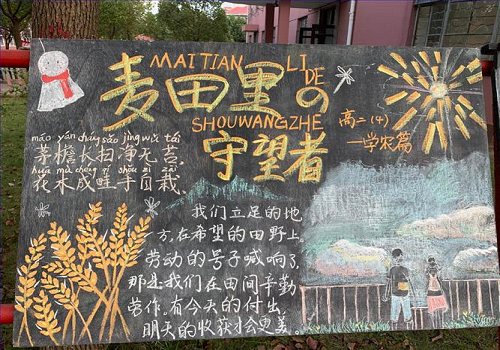 MAITIAN LI DE
麦田里の
SHOUWANGZHE
守望者
高二(4)
一学农篇
máo yán cháng sǎo jìng wú tái
茅檐长扫净无苔,
huā mù chéng qí shǒu zì zāi
花木成畦手自栽.
我们立足的地
方,在希望的田野上。
劳动的号子喊响了,
那是我们在田间辛勤
劳作。有今天的付出,
明天的收获才会更美。